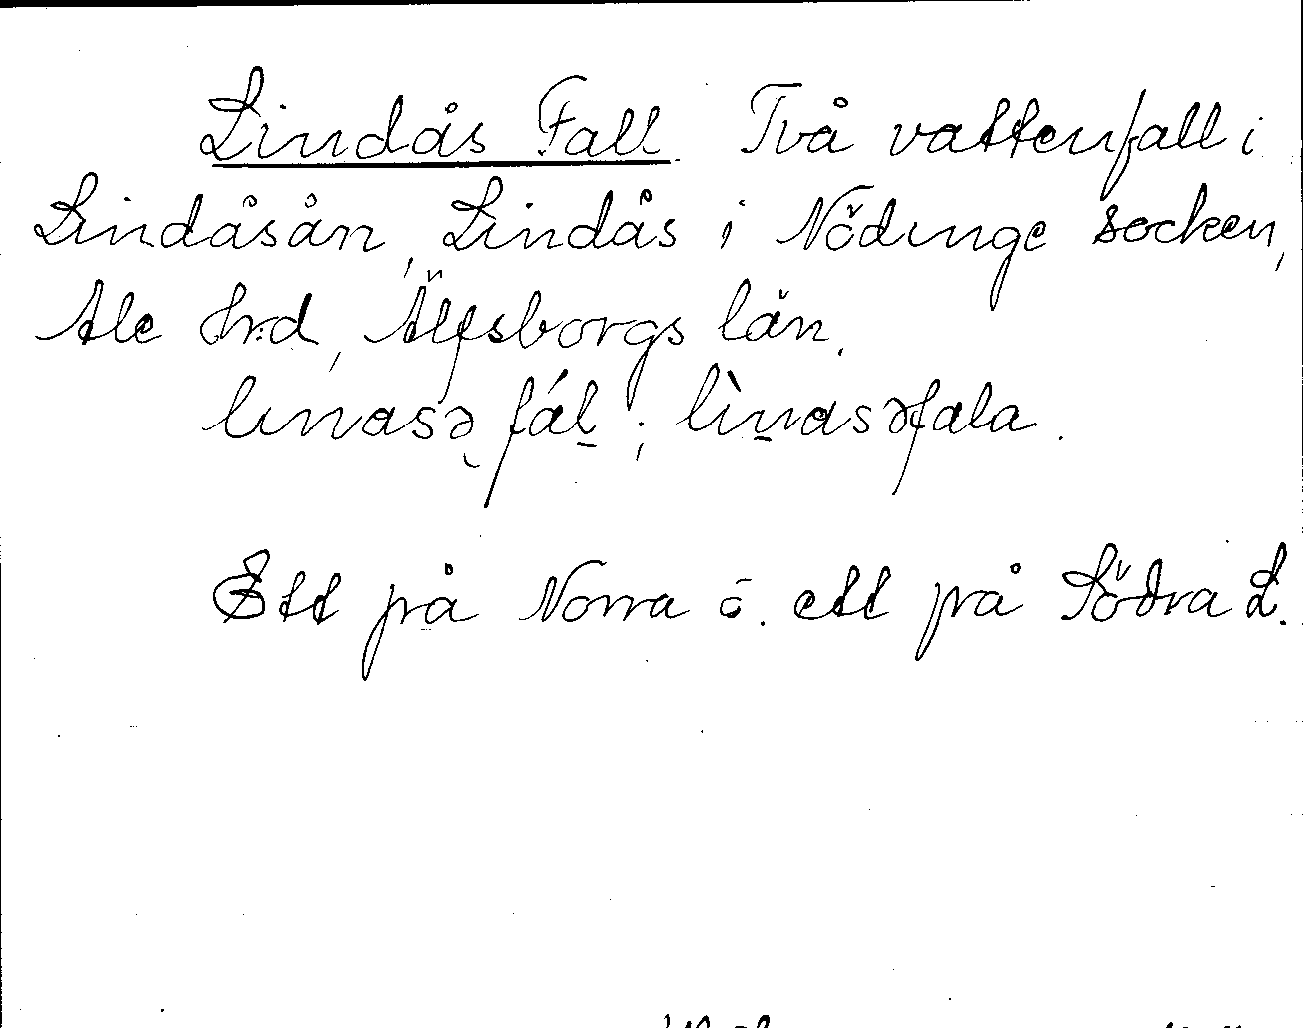 Lindås Fall. Två vattenfall i
Lindåsån, Lindås i Nödinge socken,
Ale hrd, Älfsborgs län.
linasə fál; lìnasəfala.
Ett på Norra o. ett på Södra L.